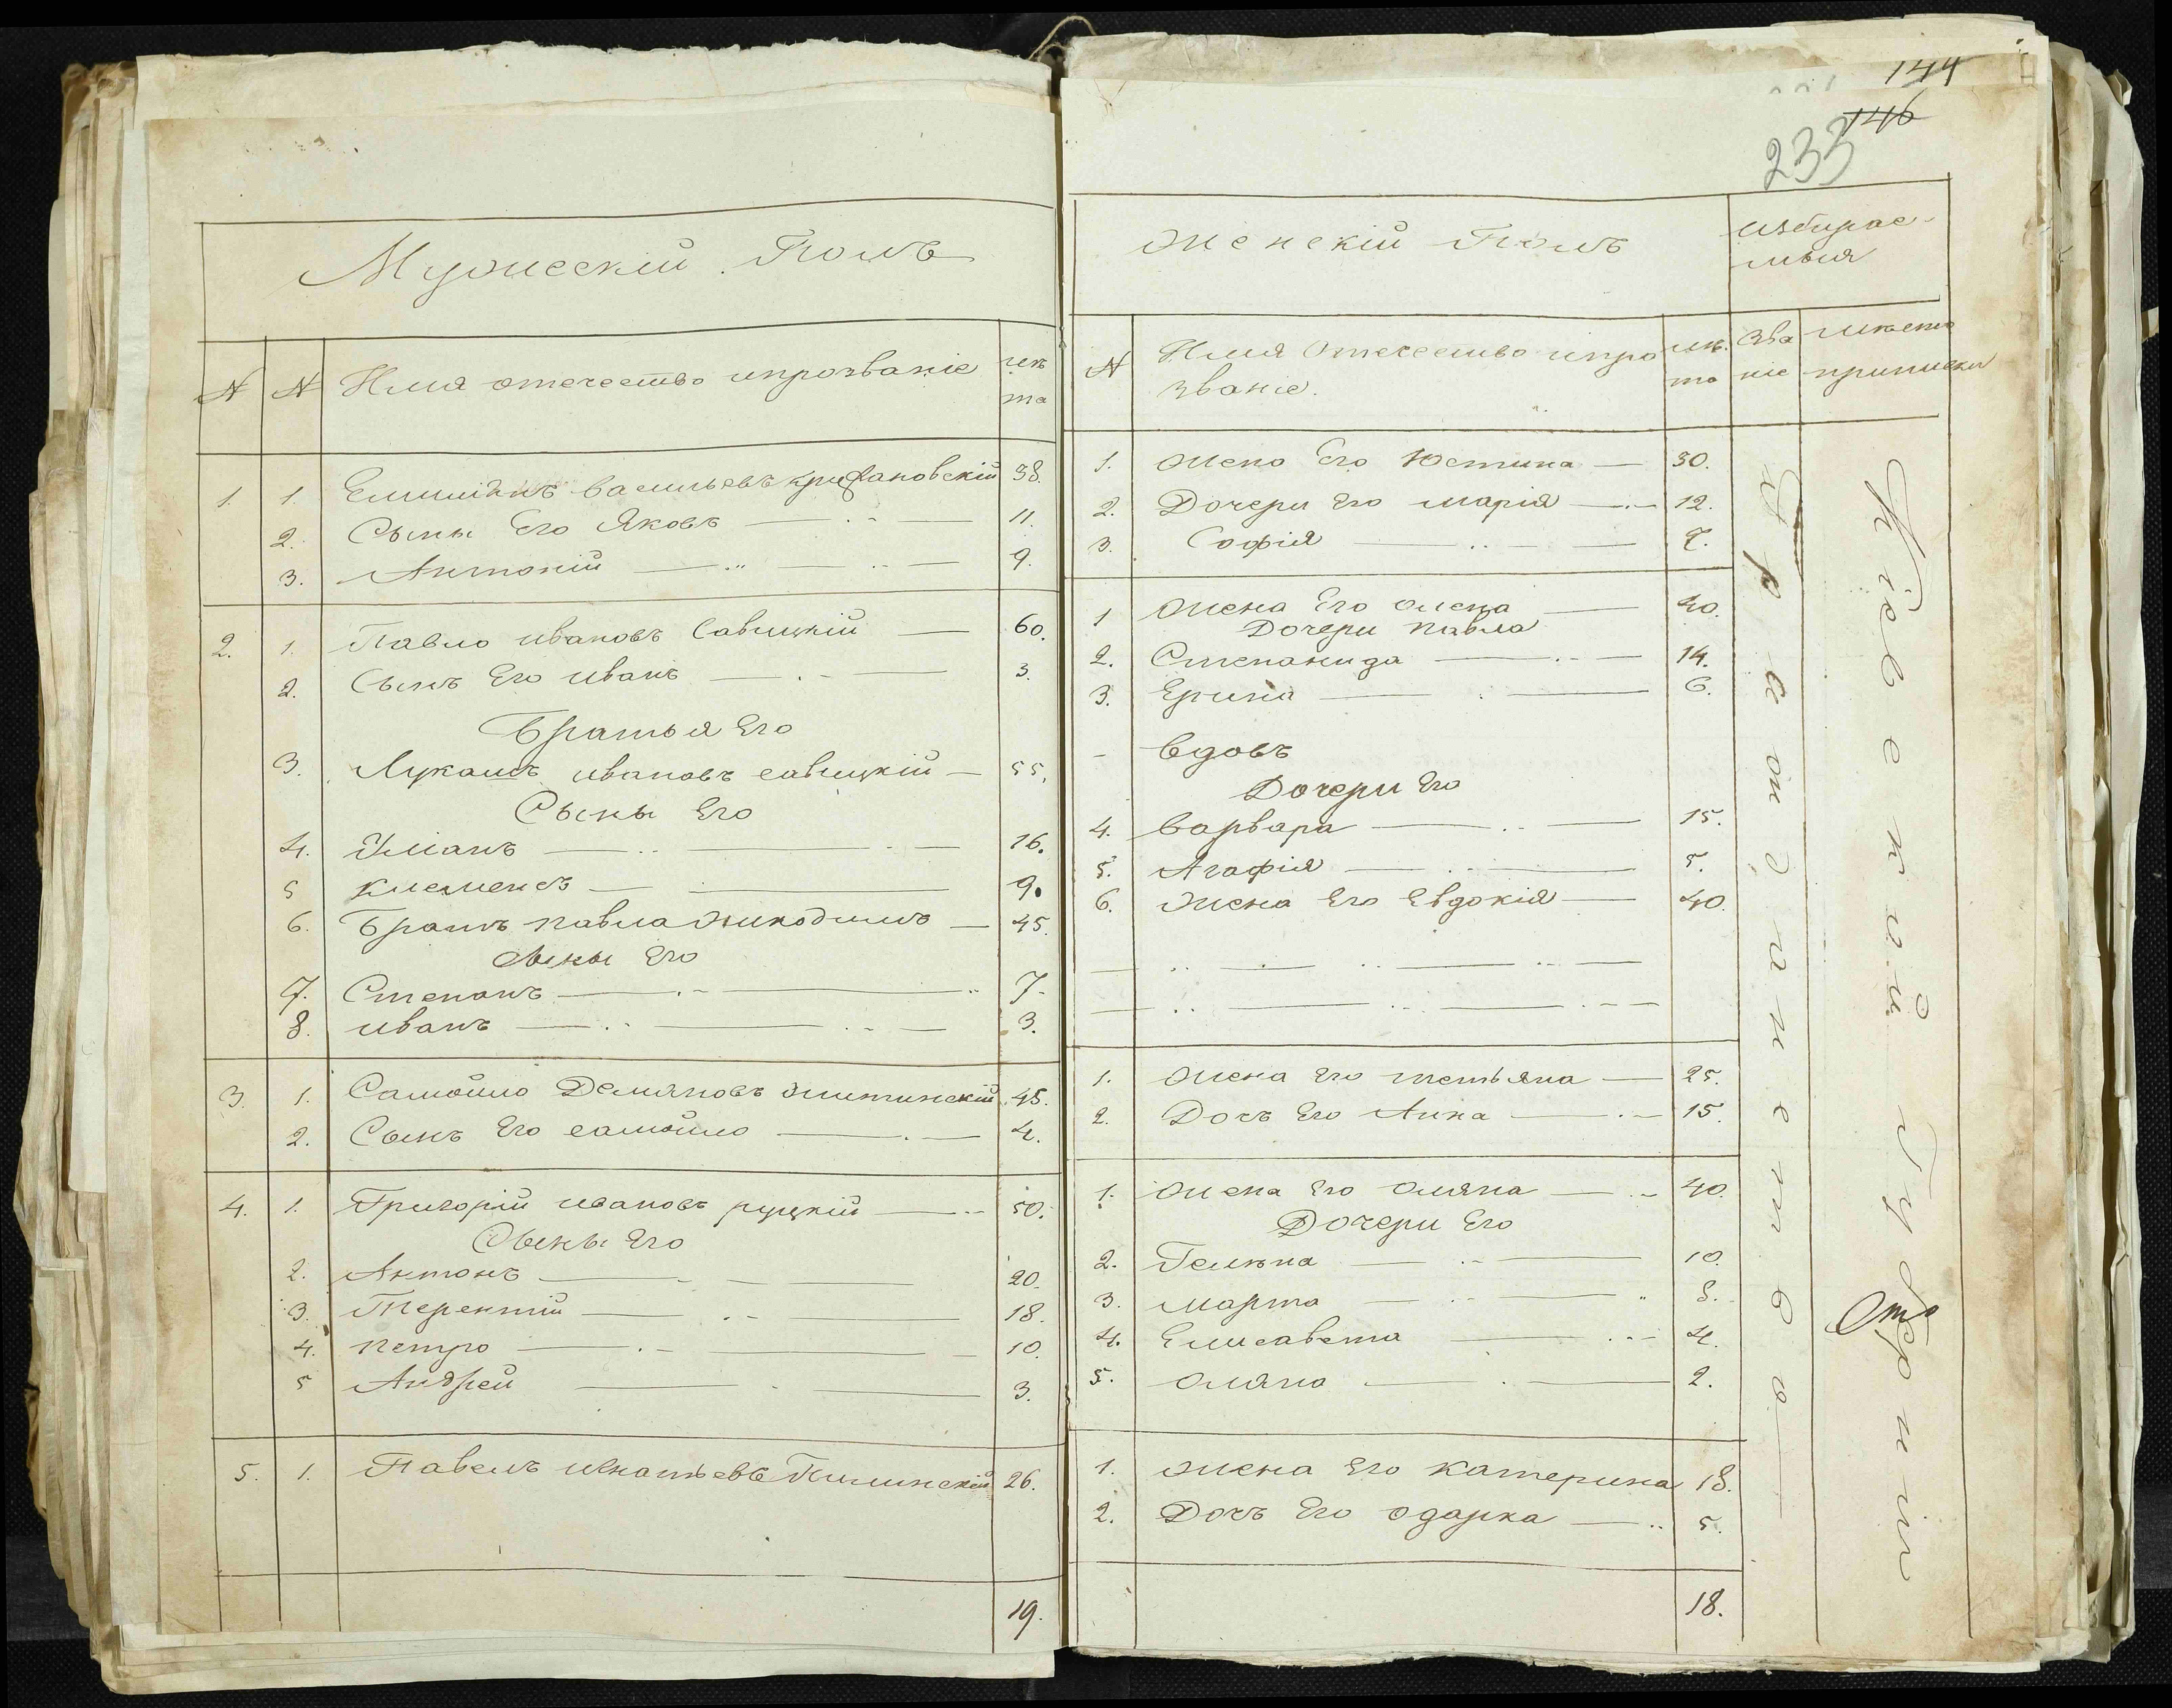 Мужескій Полъ
№
№
Имя отечество ипрозваніе
лѣ
та
1.
1.
Емиліанъ васильевъ крижановскій
38.
2.
Сыны Его Яковъ
11.
3.
Антоній
9.
2.
1.
Павло ивановъ Савицкій
60.
2.
Сынъ Его иванъ
3.
Братья Его
3.
Лукашъ ивановъ савицкій
55.
Сыны Его
4.
Уліанъ
16.
5
клеменсъ
9.
6.
Братъ павла никодимъ
45.
Сыны Его
7.
Степанъ
7.
8.
иванъ
3.
3.
1.
Самойло Демяновъ
45.
2.
Сынъ Его самойло
4.
4.
1.
Григорій ивановъ руцкій
50.
Сыны Его
2.
Антонъ
20.
3.
Терентій
18.
4.
петро
10.
5
Андрей
3.
5.
1.
Павелъ игнатьевъ
26.
19.
144
146
233
Женскій Полъ
избирае-
мыя
№
Имя Отечество ипро
званіе.
лѣ.
та
Зва
ніе
мѣсто
приписки
1.
Жена Его Юстина
30.
2.
Дочери Его марія
12.
3.
Софія
7.
1
Жена Его олена
40.
Дочери павла
2.
Степанида
14.
3.
Ерина
6.
вдовъ
Дочери Его
4.
варвара
15.
5.
Агафія
5.
6.
Жена Его Евдокія
40.
1.
Жена Его тетьяна
25.
2.
Дочъ Его Анна
15.
1.
Жена Его оляна
40.
Дочери Его
2.
Гелѣна
10.
3.
марта
8.
4.
Елисавета
4.
5.
оляна
2.
1.
Жена Его катерина
18.
2.
Дочъ Его одарка
5.
18.
Гражданства
Кіевский Губерніи
Отъ